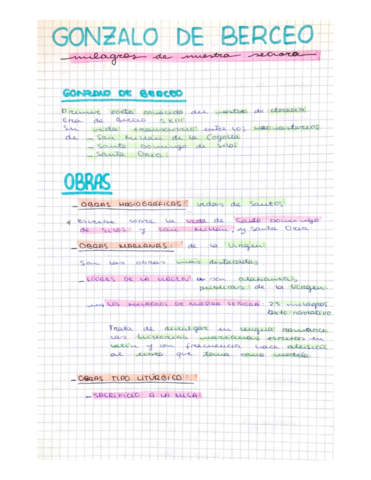 GONZALO DE BERCEO
milagros de nuestra señora
GONZALO DE BERCEO
Primer poeta conocido del mester de clerecía
Era de Berceo S.XIII
Su vida transcurrió entre los monasterios
de - San Millán de la Cogolla
- Santo Domingo de Silos
- Santa Oria.
OBRAS
- OBRAS HAGIOGRÁFICAS: vidas de Santos
* Escribe sobre la vida de Santo Domingo
de Silos y San Millán, y Santa Oria.
- OBRAS MARIANAS: de la Virgen
Son las obras más destacadas
- LOORES DE LA VIRGEN → son alabanzas
de la Virgen
→ LOS MILAGROS DE NUESTRA SEÑORA: 25 milagros
texto narrativo
Trata de divulgar en lengua romance
las historias marianas escritas en
latín y con frecuencia hace alusión
al texto que toma como modelo
- OBRAS TIPO LITÚRGICO
- SACRIFICIO A LA MISA